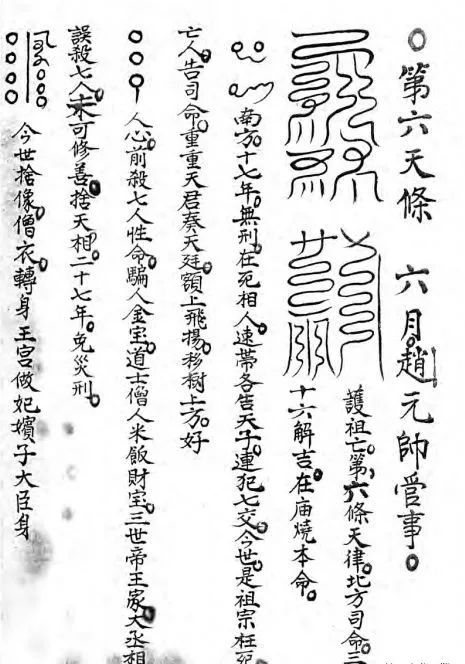 ○第六天條 六月趙元帥管事○
護祖亡○第六條天律○北方司命○三
十六解吉○在庙燒本命○
南方○十七年○無刑○在死相人○速帶各告天子○連犯七交○今世○是祖宗枉死
亡人○告司命○重重天君奏天廷○額上飛揚○移樹上方○好
人心○前殺七人性命○騙人金宝○道士僧人米飯財宝○三世帝王家○大丞相
誤殺七人○未可修善○捨天相○二十七年○免災刑○
今世捨像僧衣○轉身王宮做妃嬪子大臣身